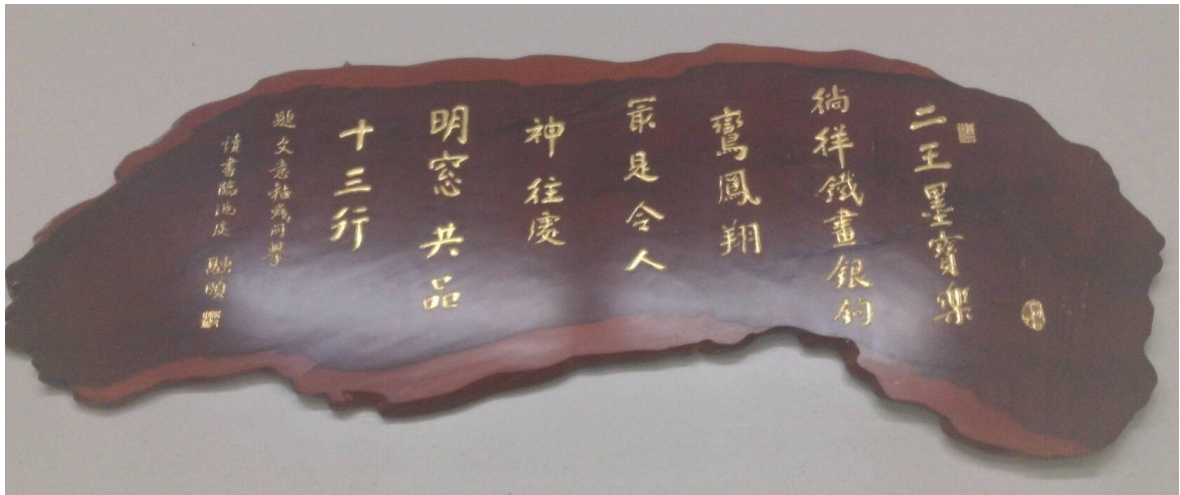 二王墨寶樂
徜徉鐵畫銀鉤
鸞鳳翔
最是令人
神往處
明窓共品
十三行
題文意
情書臨池處 融頌